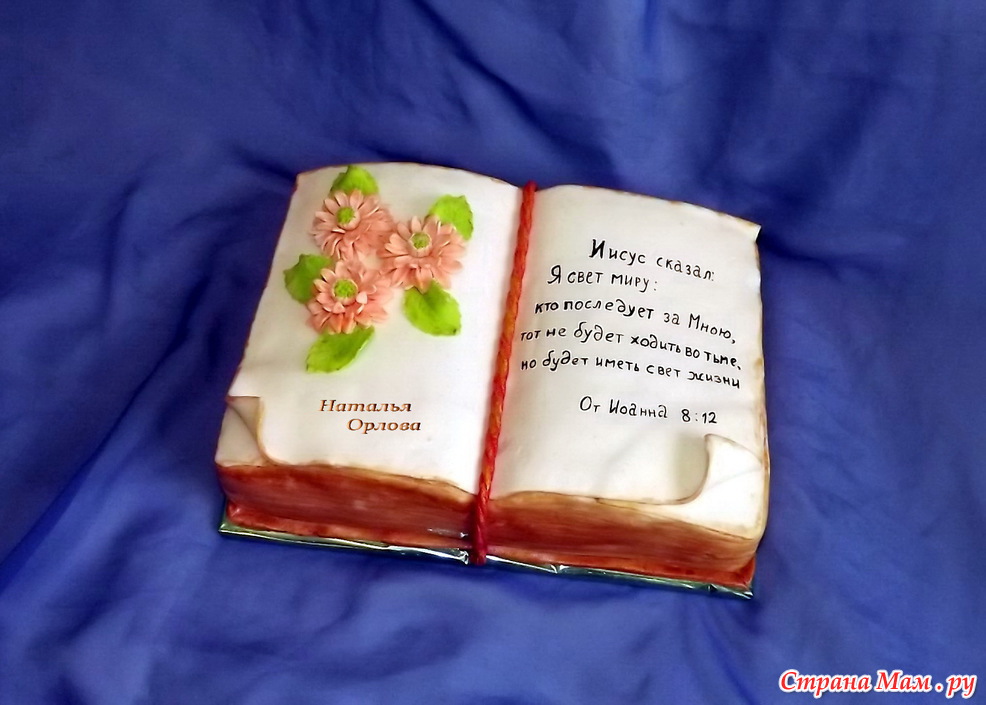 Наталья
Орлова
Иисус сказал:
Я свет миру:
кто последует за Мною,
тот не будет ходить во тьме,
но будет иметь свет жизни
От Иоанна 8:12
Страна Мам.ру